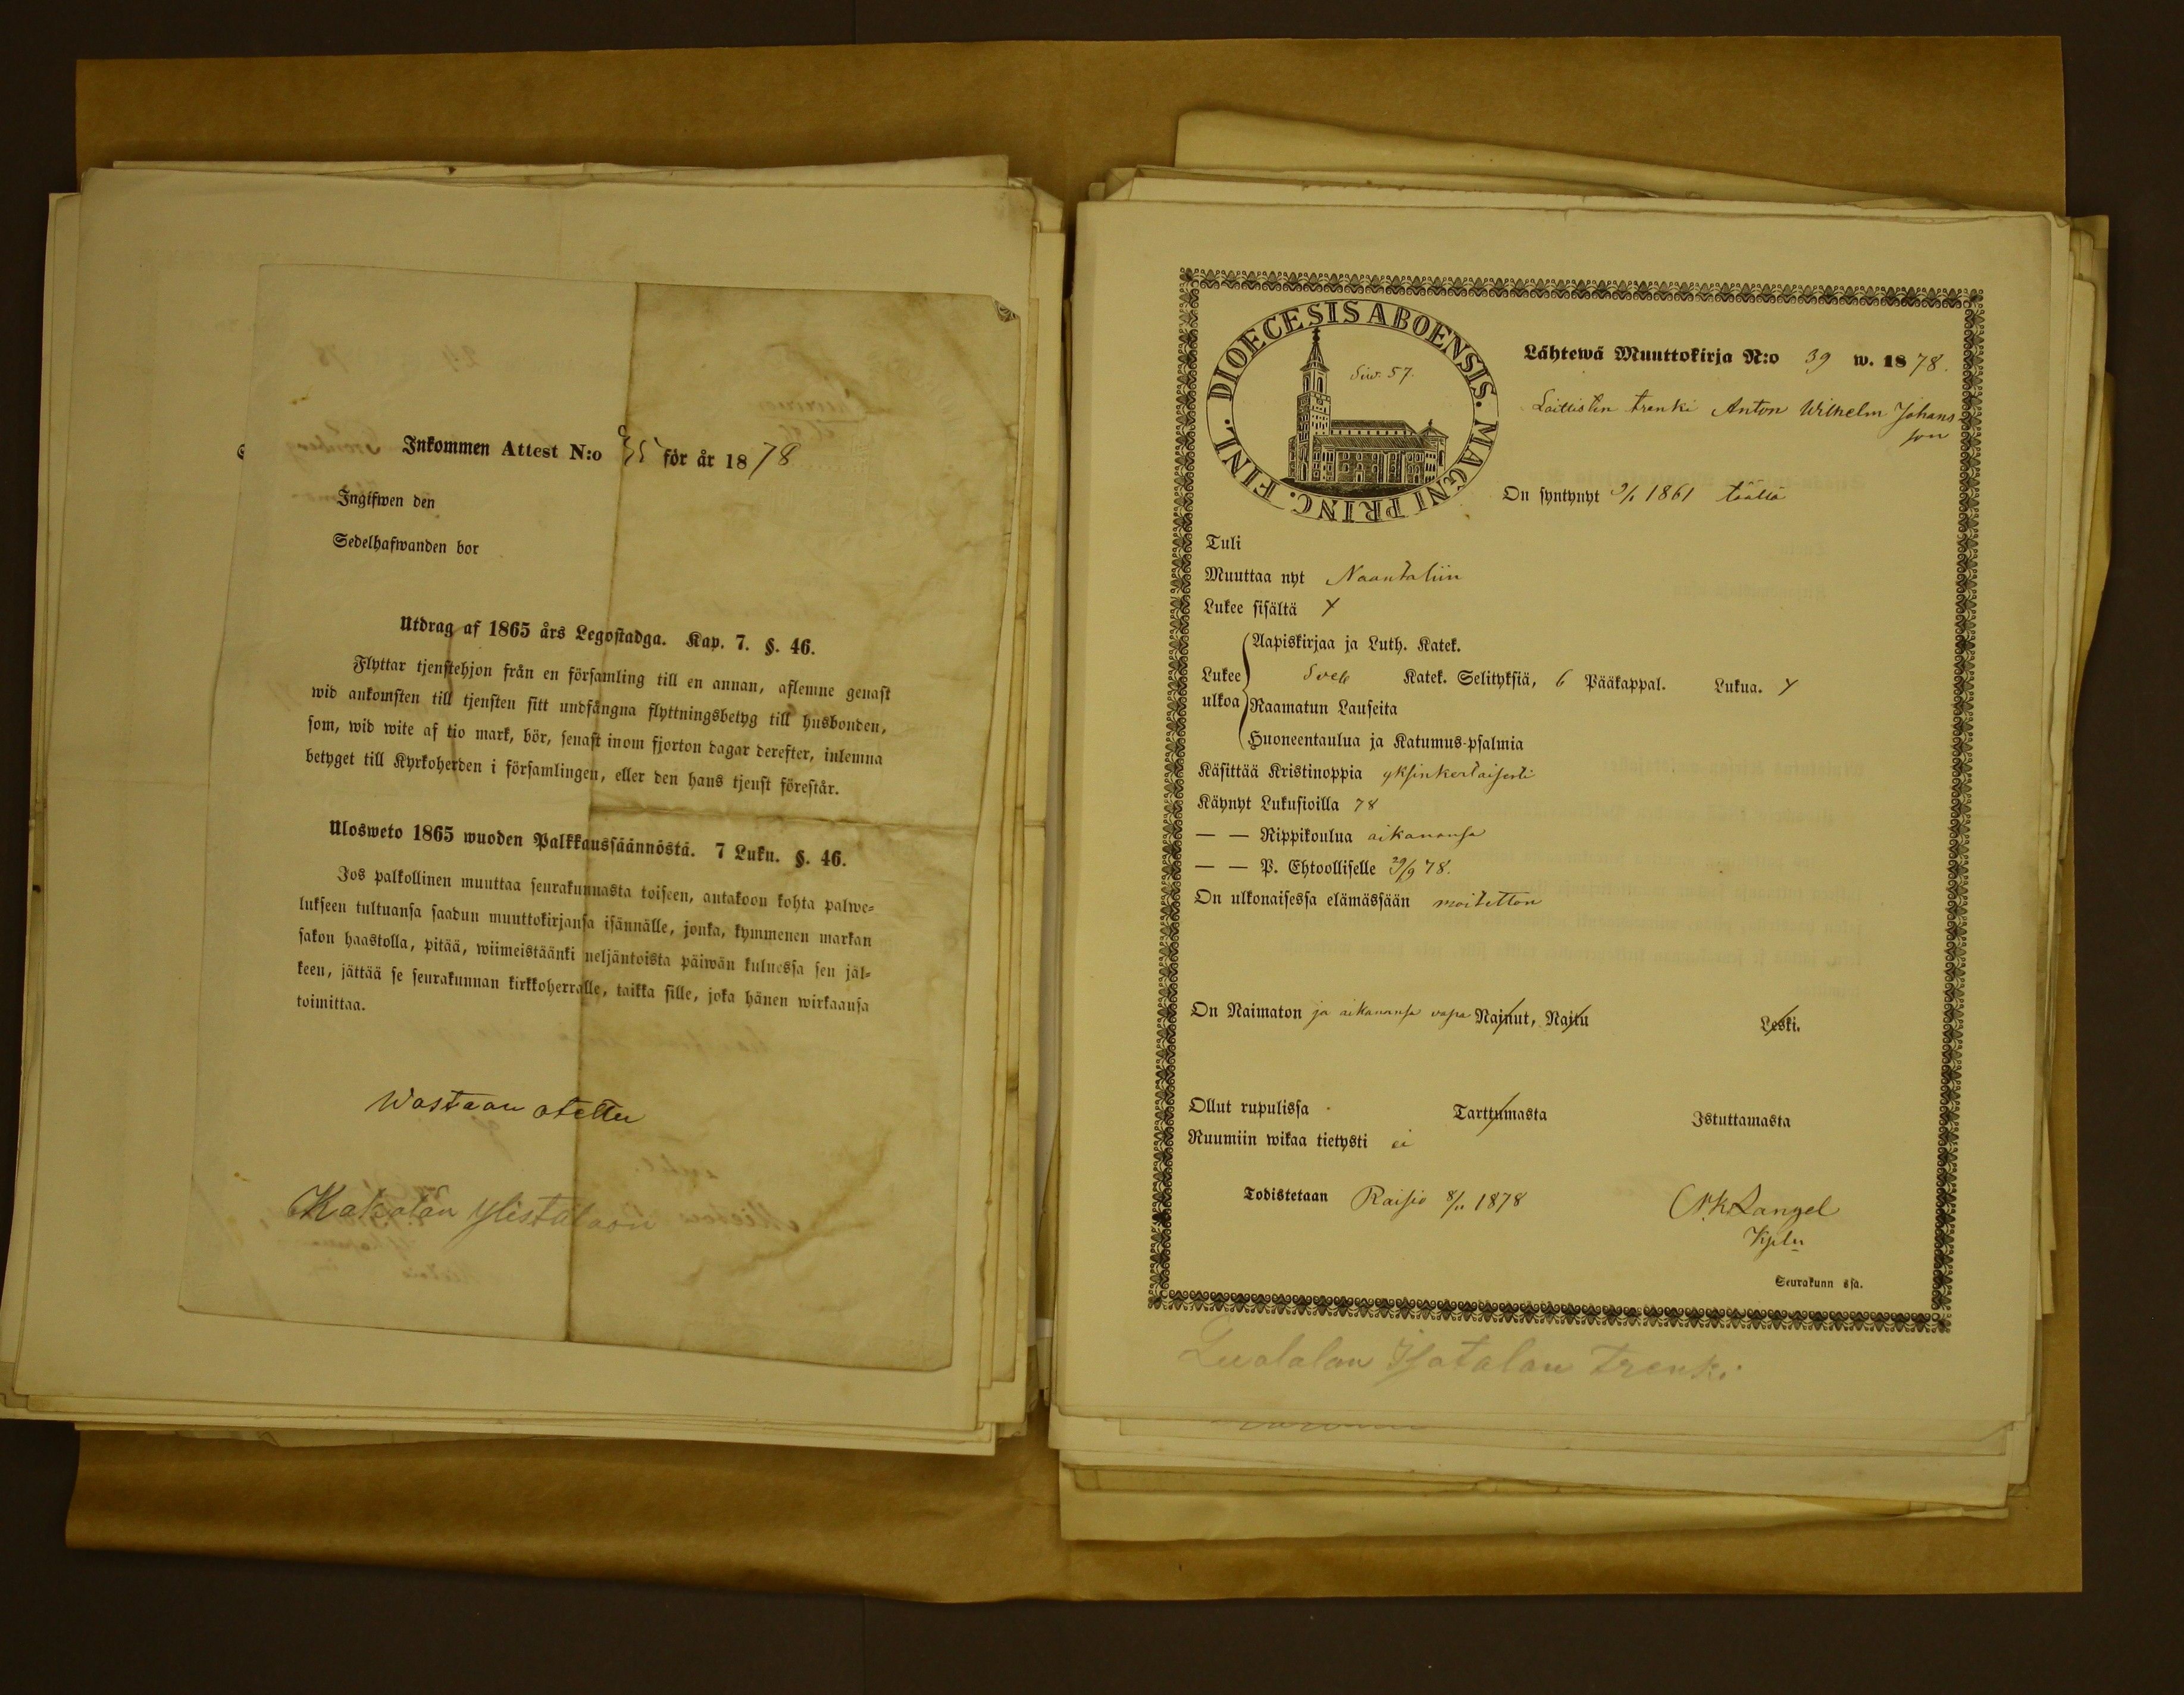 Inkommen Attest N:o 35 för år 1878
Ingifwen den
Sedelhafwanden bor
Utdrag af 1865 års Legostadga. Kap. 7. §. 46.
Flyttar tjenstehjon från en församling till en annan, aflemne genast
wid ankomsten till tjensten sitt undfångna flyttningsbetyg till husbonden,
som, wid wite af tio mark, bör, senast inom fjorton dagar derefter, inlemna
betyget till Kyrkoherden i församlingen, eller den hans tjenst förestår.
Ulosweto 1865 wuoden Palkkaussäännöstä. 7 Luku. §. 46.
Jos palkollinen muuttaa seurakunnasta toiseen, antakoon kohta palwe-
lukseen tultuansa saadun muuttokirjansa isännälle, jonka, kymmenen markan
sakon haastolla, pitää, wiimeistäänki neljäntoista päiwän kuluessa sen jäl-
keen, jättää se seurakunnan kirkkoherralle, taikka sille, joka hänen wirkaansa
toimittaa.
Wastaan otettu
Kakolan Ylistaloon
DIOECESIS ABOENSIS. MAGNI PRINC. FINL.
Siw. 57.
Lähtewä Muuttokirja N:o 39 w. 1878.
Laittisten trenki Anton Wilhelm Johans
son
On syntynyt 9/1 1861 täällä
Tuli
Muuttaa nyt Naantaliin
Lukee sisältä
Aapiskirjaa ja Luth. Katek.
Lukee ulkoa Sveb Katek. Selityksiä, 6 Pääkappal. Lukua.
Raamatun Lauseita
Huoneentaulua ja Katumus-psalmia
Käsittää Kristinoppia yksinkertaisesti
Käynyt Lukusioilla 78
— — Rippikoulua aikanansa
— — P. Ehtoolliselle 29/9 78.
On ulkonaisessa elämässään moitetton
On Naimaton ja aikanansa vapa Nainut, Naitu Leski.
Ollut rupulissa Tarttumasta Istuttamasta
Ruumiin wikaa tietysti ei
Todistetaan Raisio 8/11 1878
Kpln
Seurakunn ssa.
Isotalon trenki